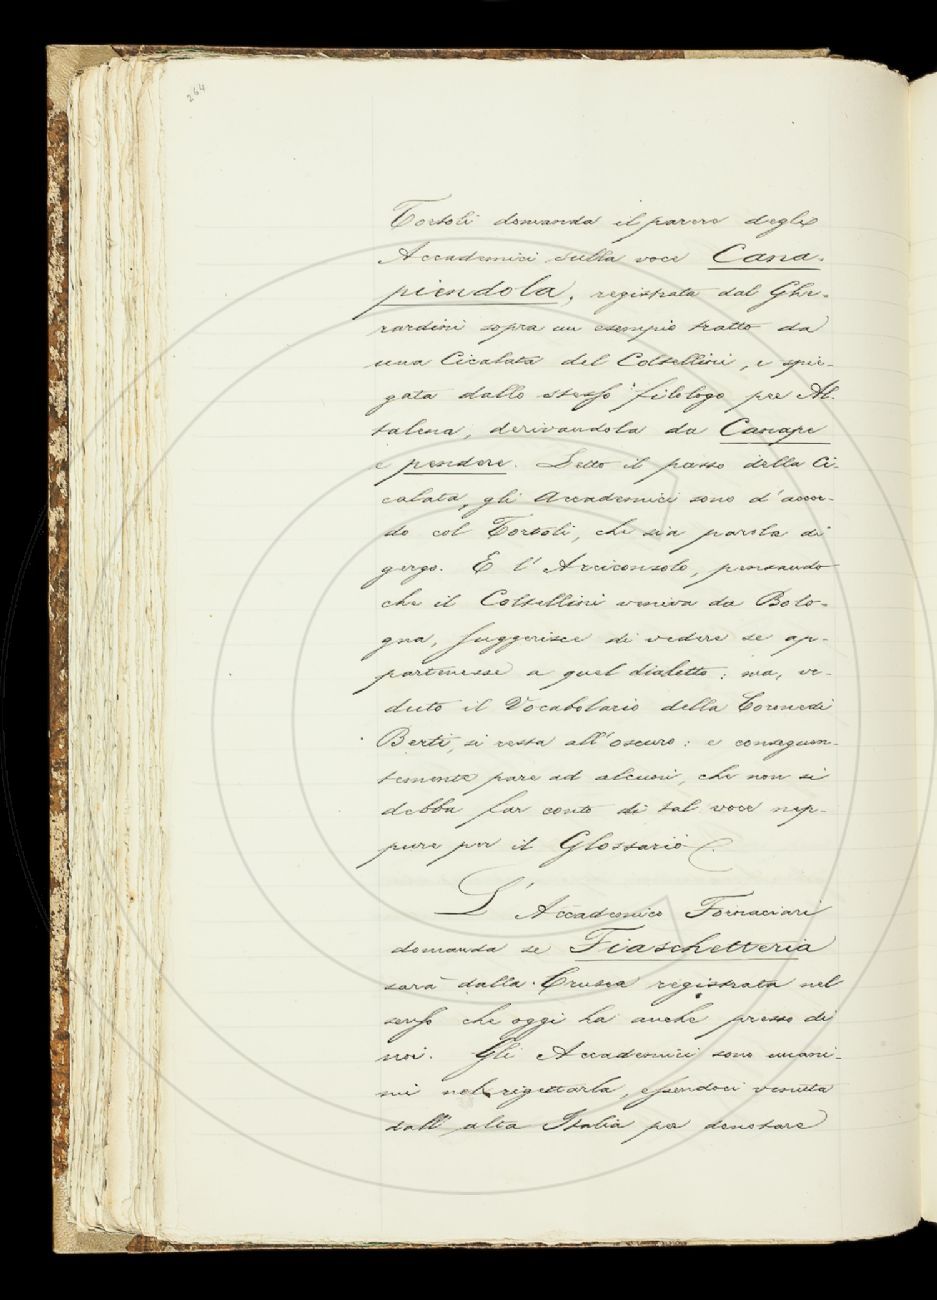 264
Tortoli domanda il parere degli
Accademici sulla voce Cana-
piendola, registrata dal Ghe-
rardini sopra un esempio tratto da
una Cicalata del Coltellini, e spie-
gata dallo stesso filologo per Al-
talena, derivandola da Canape
e pendere. Letto il passo della Ci-
calata, gli Accademici sono d'accor-
do col Tortoli, che sia parola di
gergo. E l'Arciconsolo, pensando
che il Coltellini veniva da Bolo-
gna, suggerisce di vedere se ap-
partenesse a quel dialetto; ma, ve-
duto il Vocabolario della Coronedi
Berti, si resta all'oscuro: e conseguen-
temente pare ad alcuni, che non si
debba far conto di tal voce nep-
pure per il Glossario.
L'Accademico Fornaciari
domanda se Fiaschetteria
sarà dalla Crusca registrata nel
senso che oggi ha anche presso di
noi. Gli Accademici sono unani-
mi nel rigettarla, essendoci venuta
dall'alta Italia per denotare